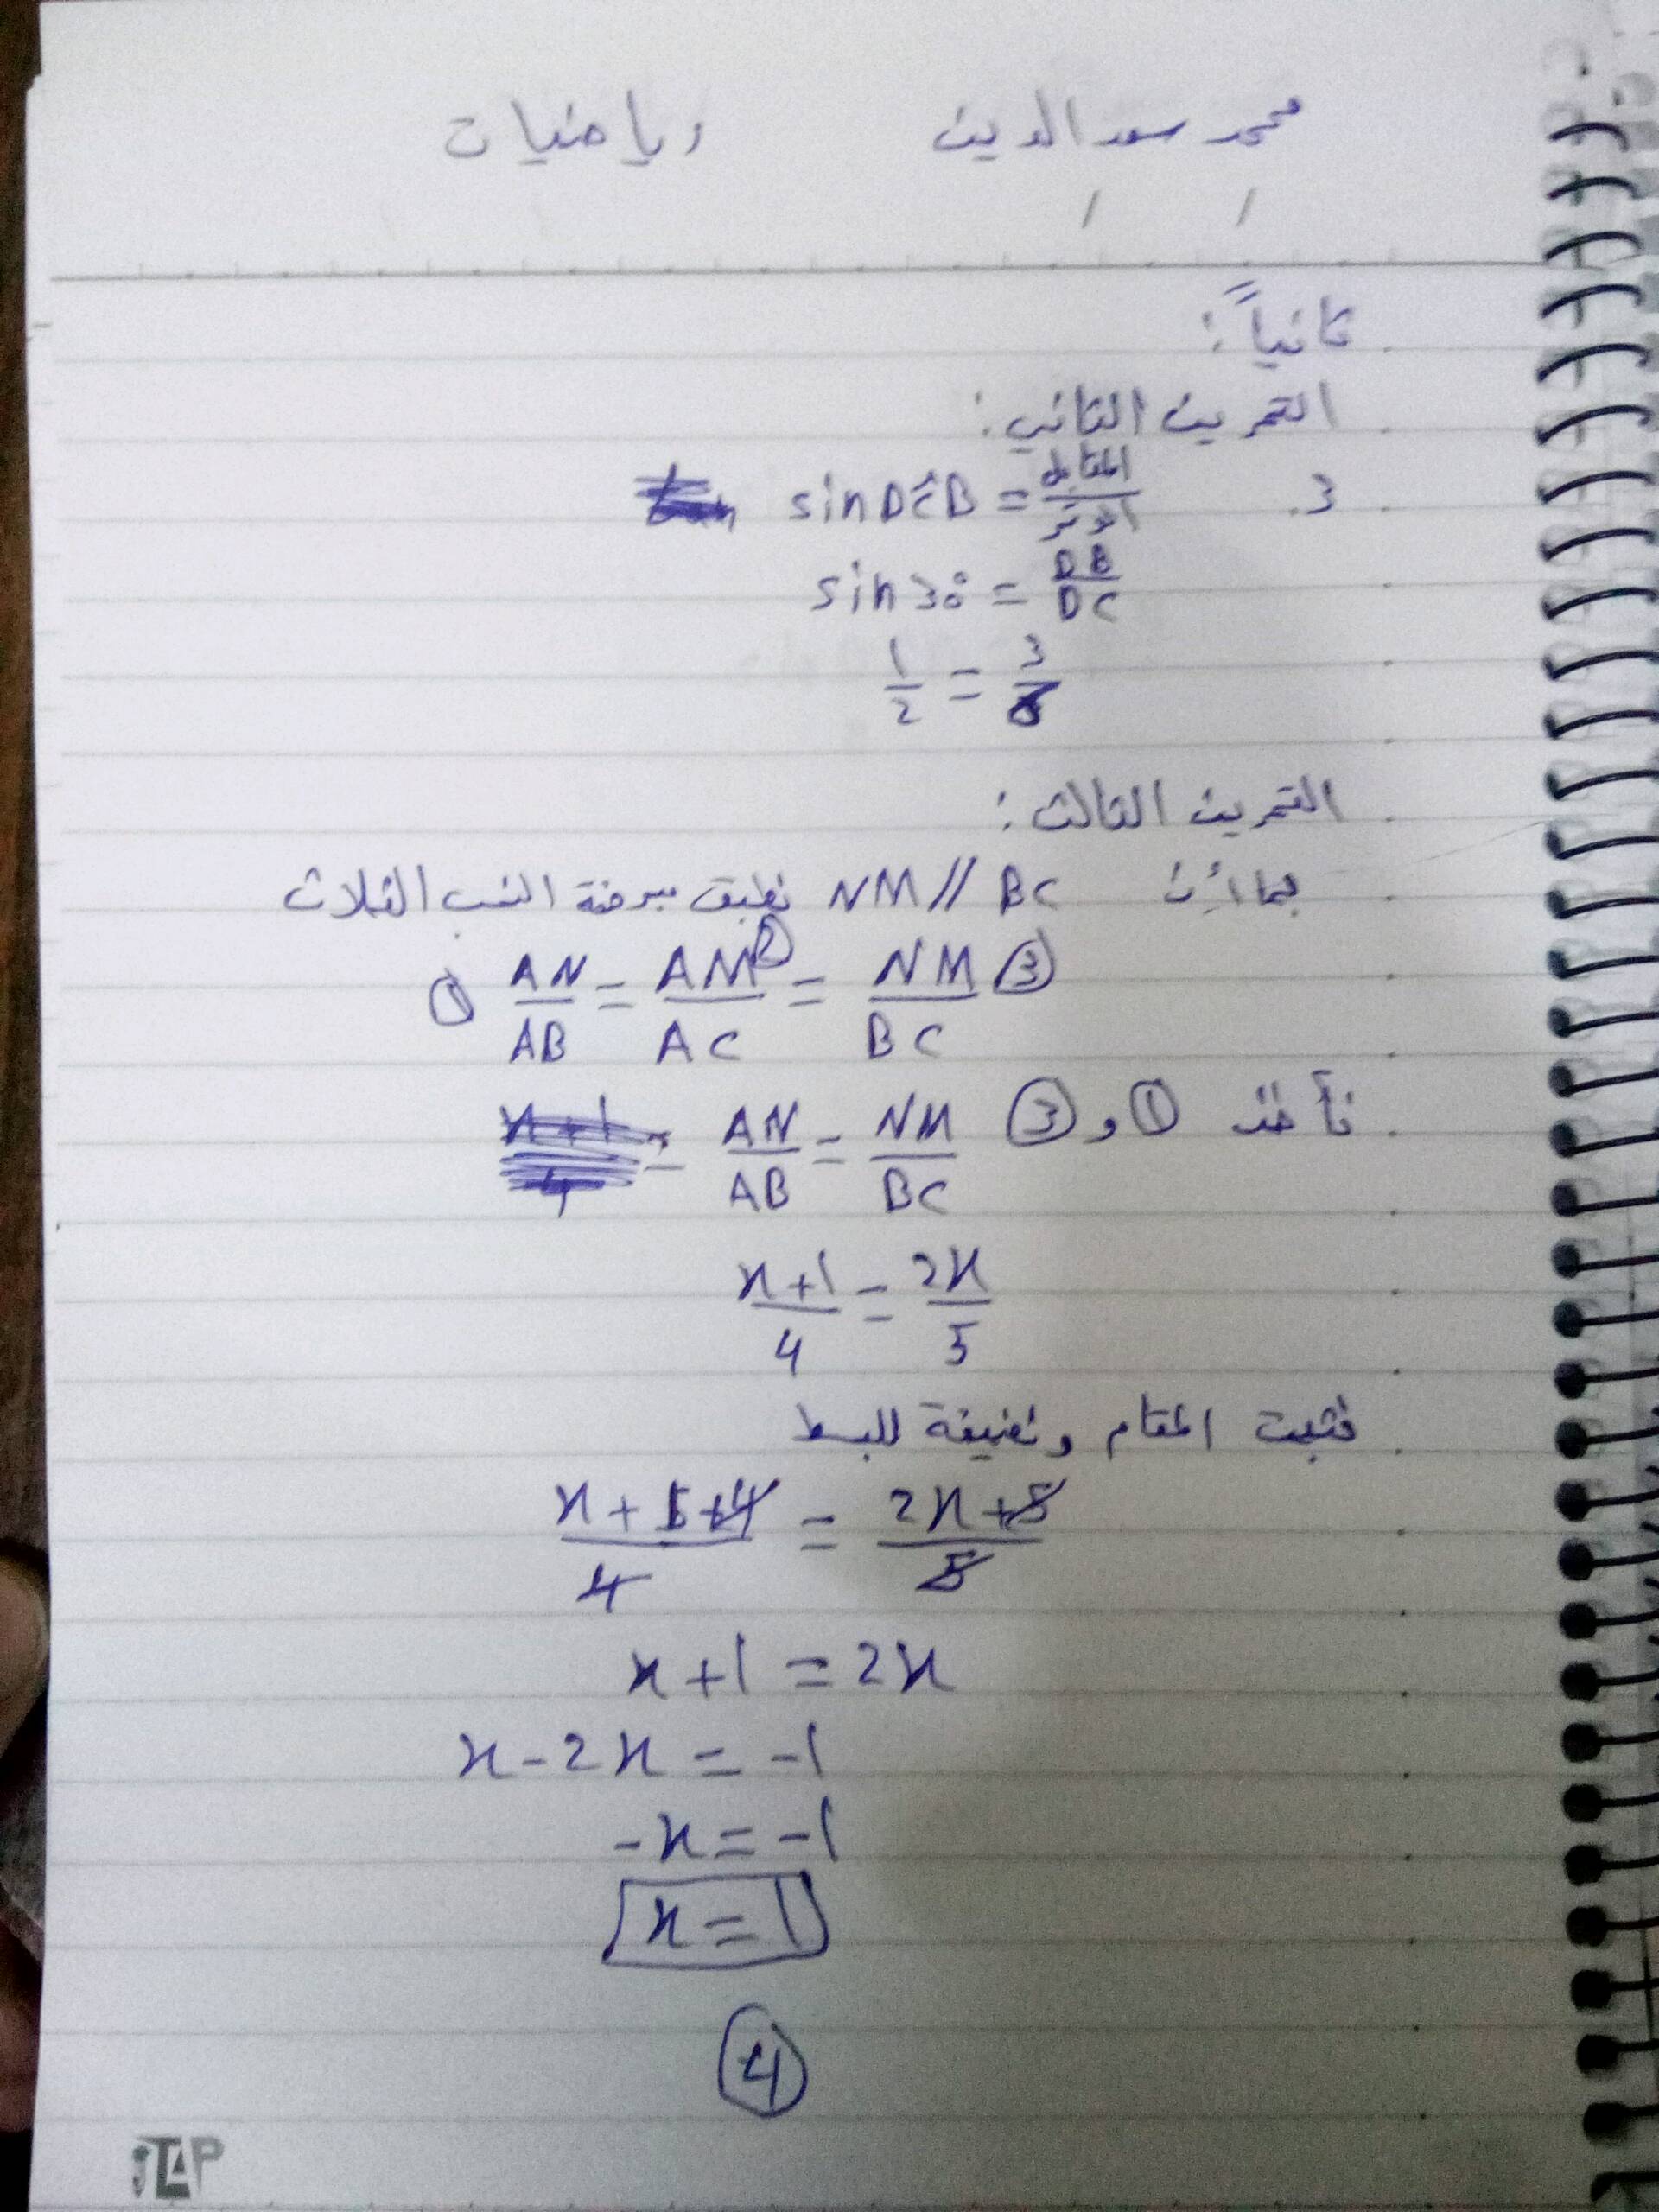 محمد سعد الدين رياضيات
/ /
ثانياً:
التمرين الثاني:
3. sin DĈB = المقابل / الوتر
sin 30° = DB / DC
1/2 = 3/6
التمرين الثالث:
بما أن NM // BC نطبق مبرهنة النسب الثلاث
① AN/AB = AM/AC ② = NM/BC ③
نأخذ ① و ③ AN/AB = NM/BC
x+1/4 = 2x/5
نثبت المقام ونضيفة للبسط
x+1+4/4 = 2x+5/5
x+1 = 2x
x-2x = -1
-x = -1
x = 1
④
TAP